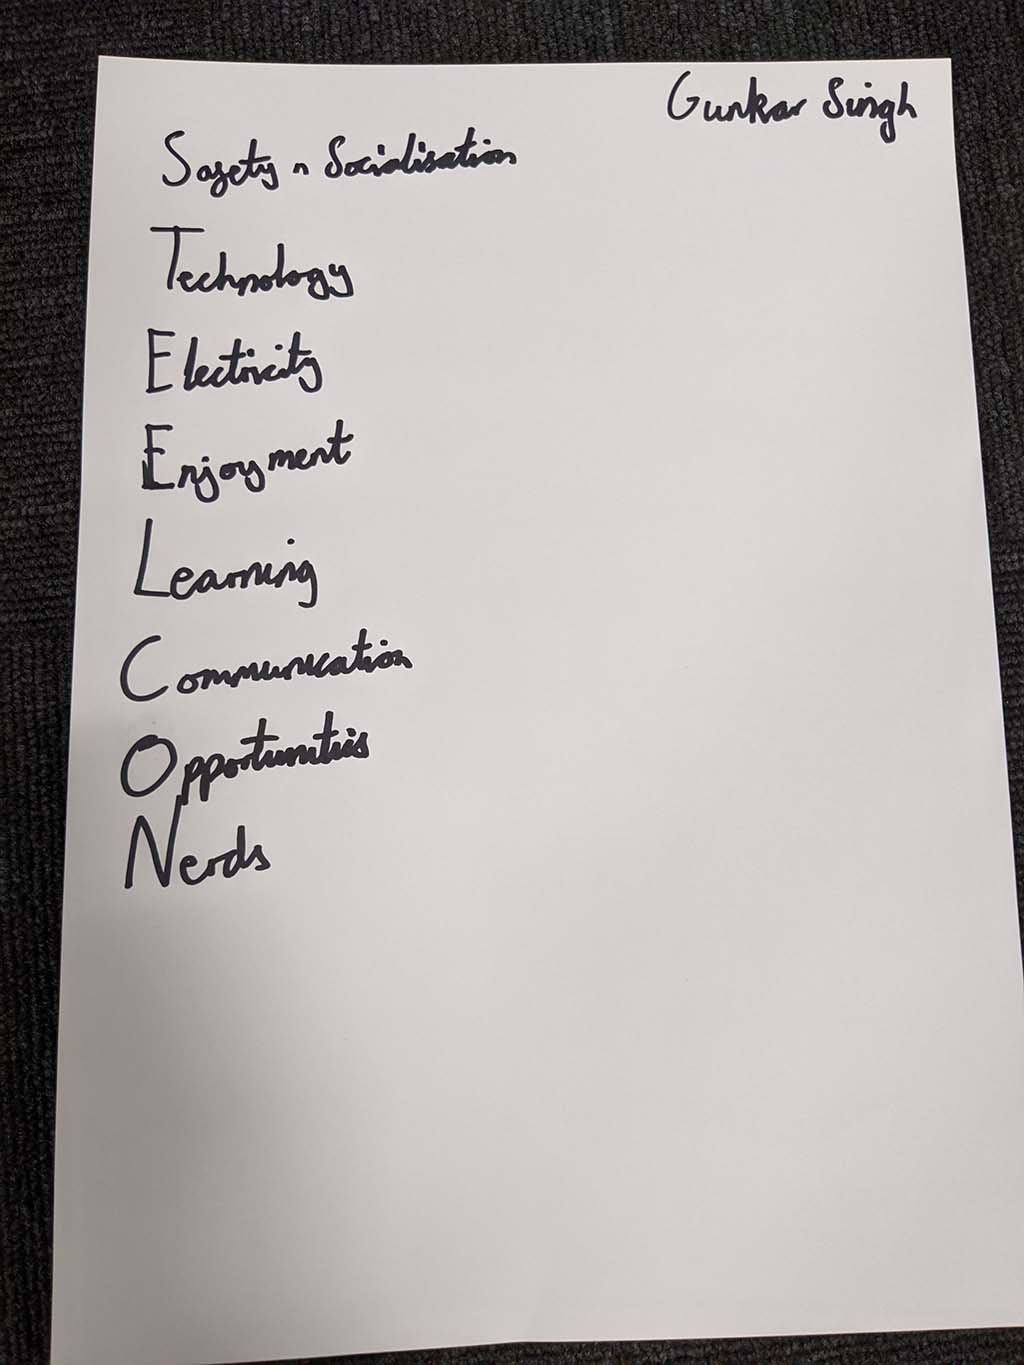 Gunkar Singh
Safety n Socialisation
Technology
Electricity
Enjoyment
Learning
Communication
Opportunities
Nerds